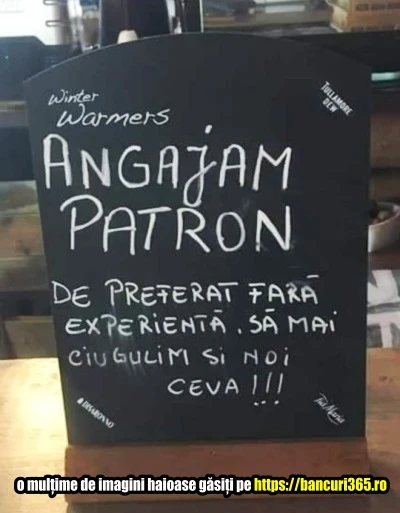 Winter
Warmers
TULLAMORE
DEW
ANGAJAM
PATRON
DE PREFERAT FĂRĂ
EXPERIENTĂ. SĂ MAI
CIUGULIM SI NOI
CEVA!!!
#DISARONNO
Tia Maria
o mulțime de imagini haioase găsiți pe https://bancuri365.ro